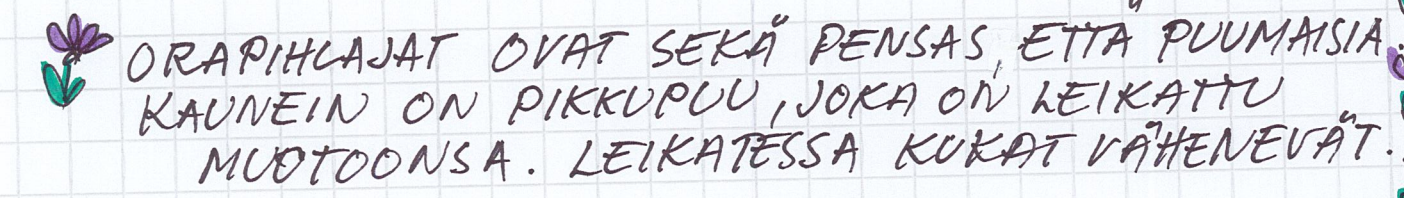 ORAPIHLAJAT OVAT SEKÄ PENSAS, ETTÄ PUUMAISIA.
KAUNEIN ON PIKKUPUU, JOKA ON LEIKATTU
MUOTOONSA. LEIKATESSA KUKAT VÄHENEVÄT.